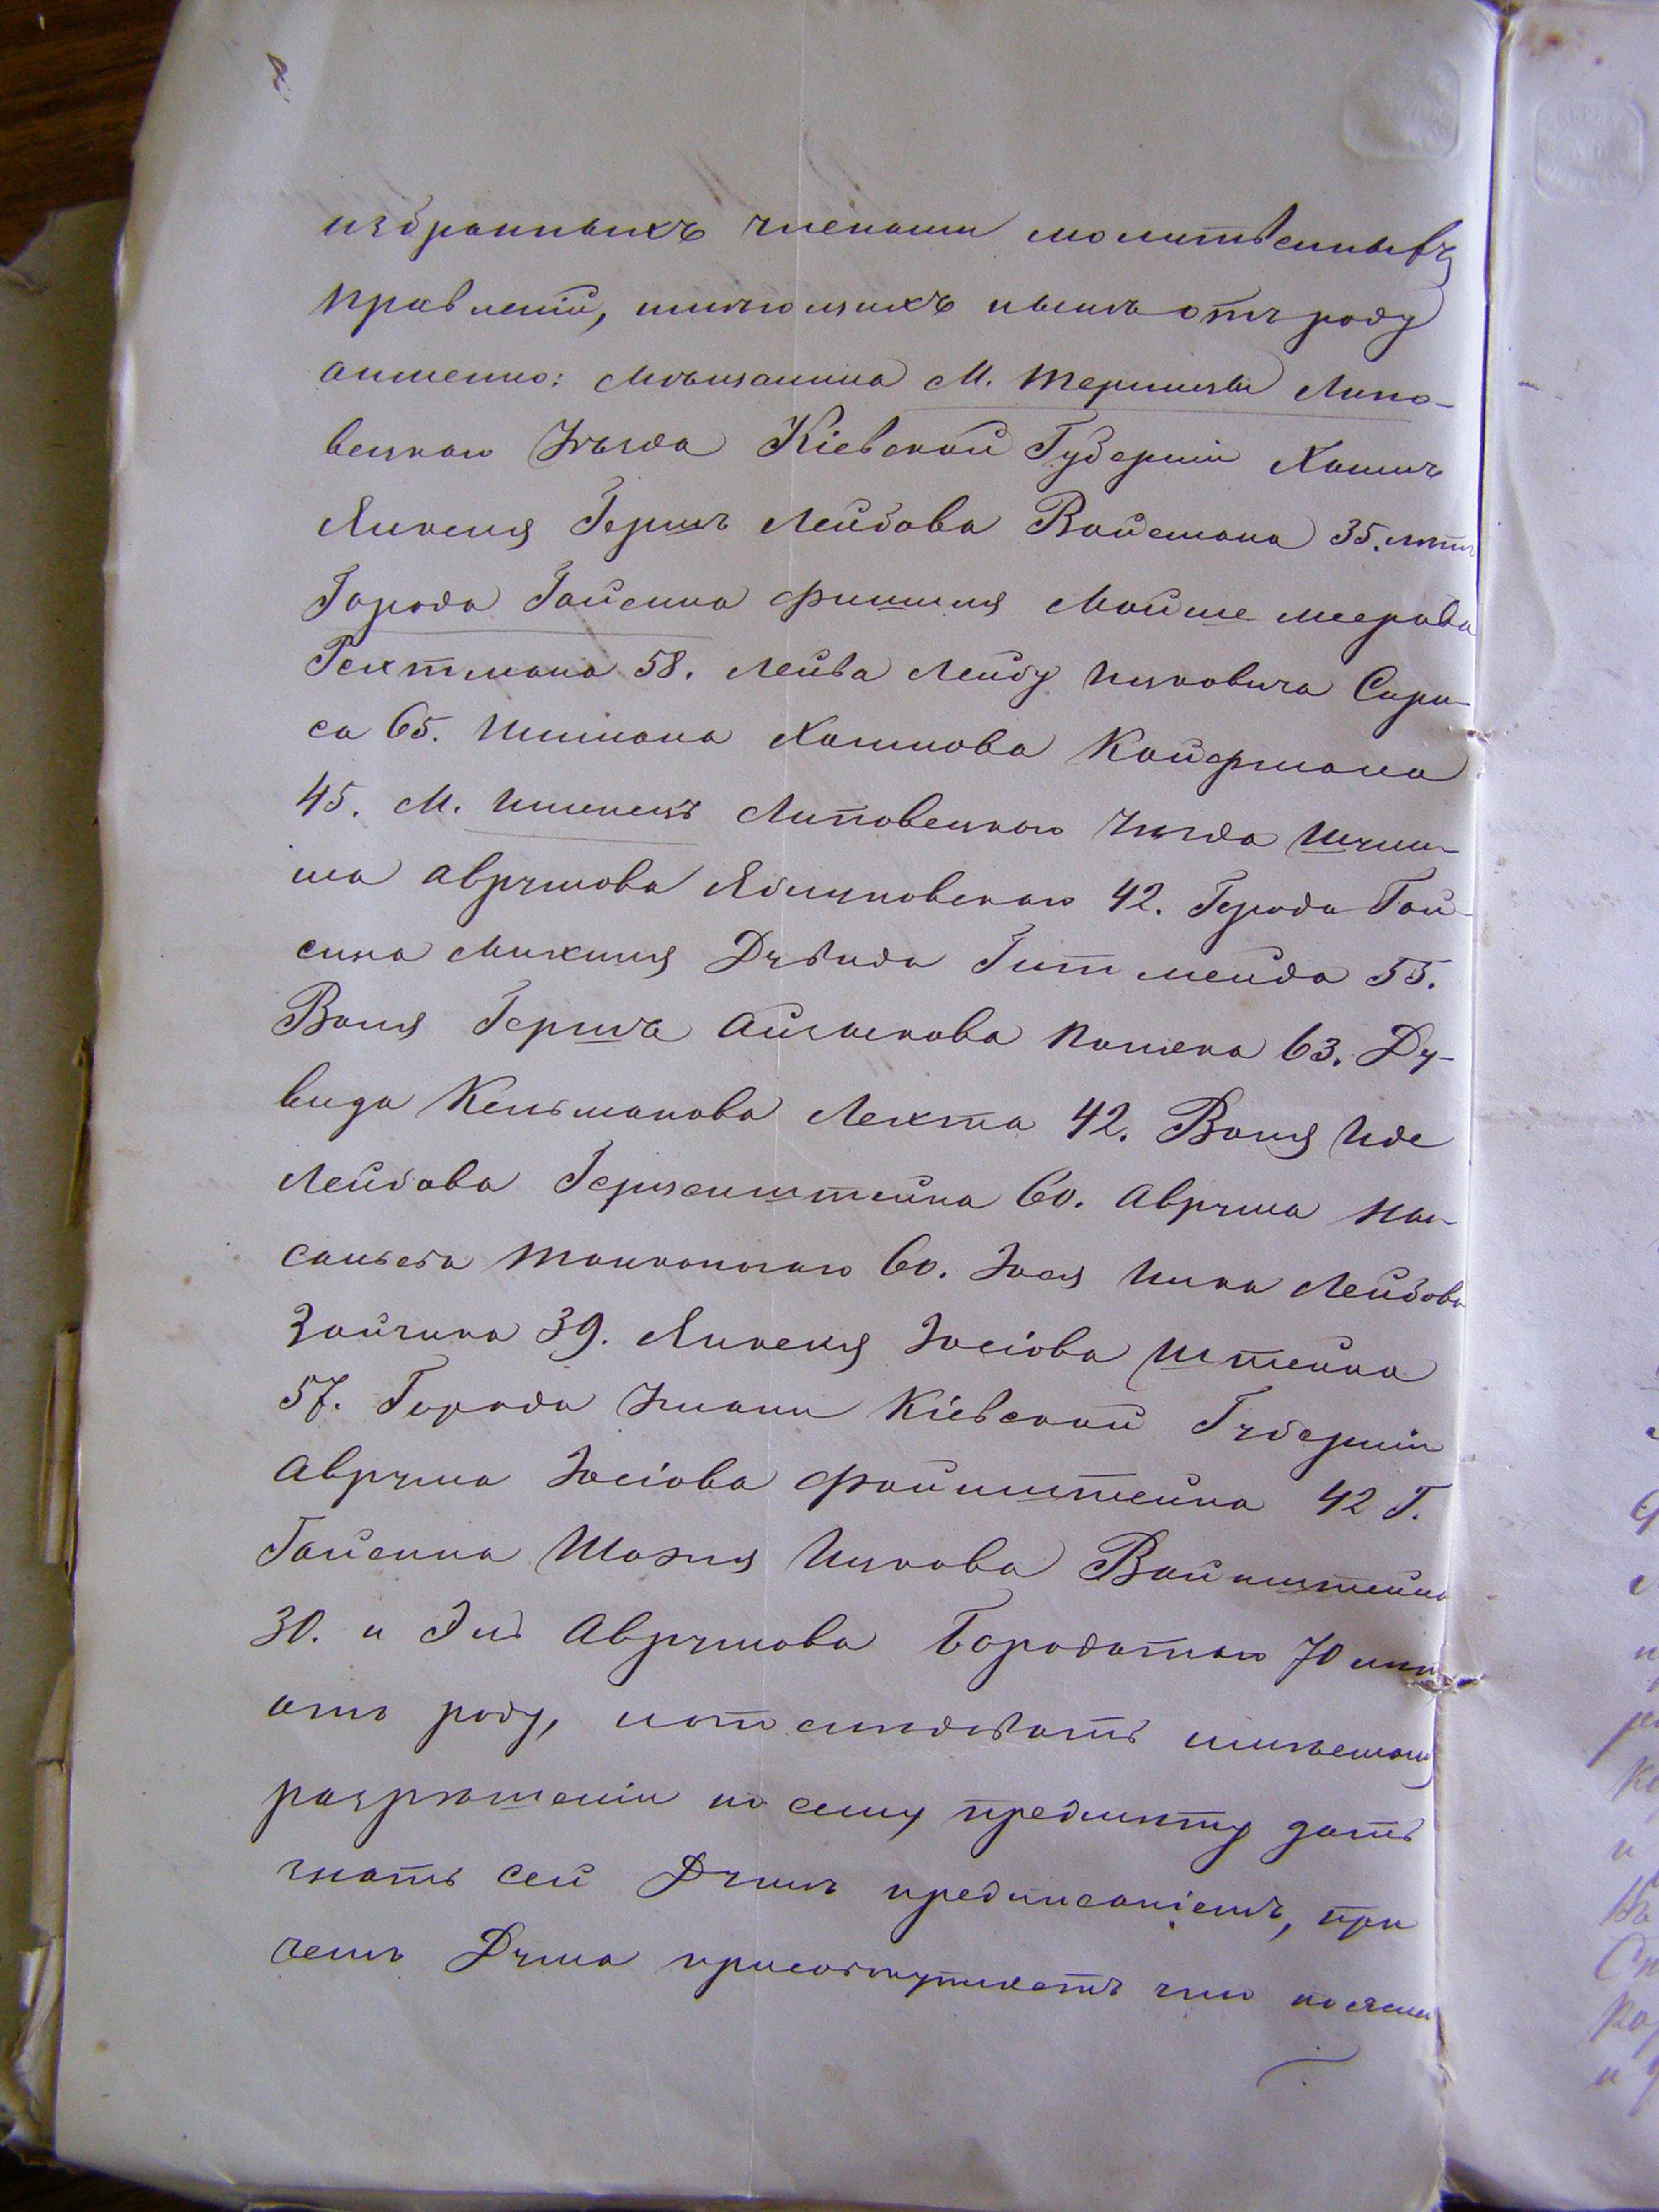 избранныхъ членами молитвенныхъ
правленій, имѣющихъ нынѣ отъ роду
а именно: Мѣщанина М. Терлицы Липо-
вецкаго Уѣзда Кіевской Губерніи Хаимъ
Янкеля Гершъ Лейбова Вайсмана 35. лѣтъ
Города Гайсина Фишеля Мойше Меерова
Гехтмана 58. Лейба Лейбу Ицковича
са 65. Шимона Хаимова Кайфмана
45. М. Липовецкаго Уѣзда
ма Аврумова Яблуновскаго 42. Города Гай-
сина Михеля Дувида 55.
Волья Гершъ Айзыкова 63. Ду-
вида Кельманова Лехта 42. Волья Иде
Лейбова Герценштейна 60. Аврума
60. Іося Лейбова
Зайчика 39. Янкеля Іосіова Штейна
57. Города Умани Кіевской Губерніи
Аврума Іосіова Файнштейна 42 Г.
Гайсина Ицкова Вайнштейна
30. и Аврумова Бородатаго 70 лѣтъ
отъ роду, и о
разрѣшеніи по сему предмету дать
знать сей Думѣ предписаніемъ, при
чемъ Дума присовокупляетъ что